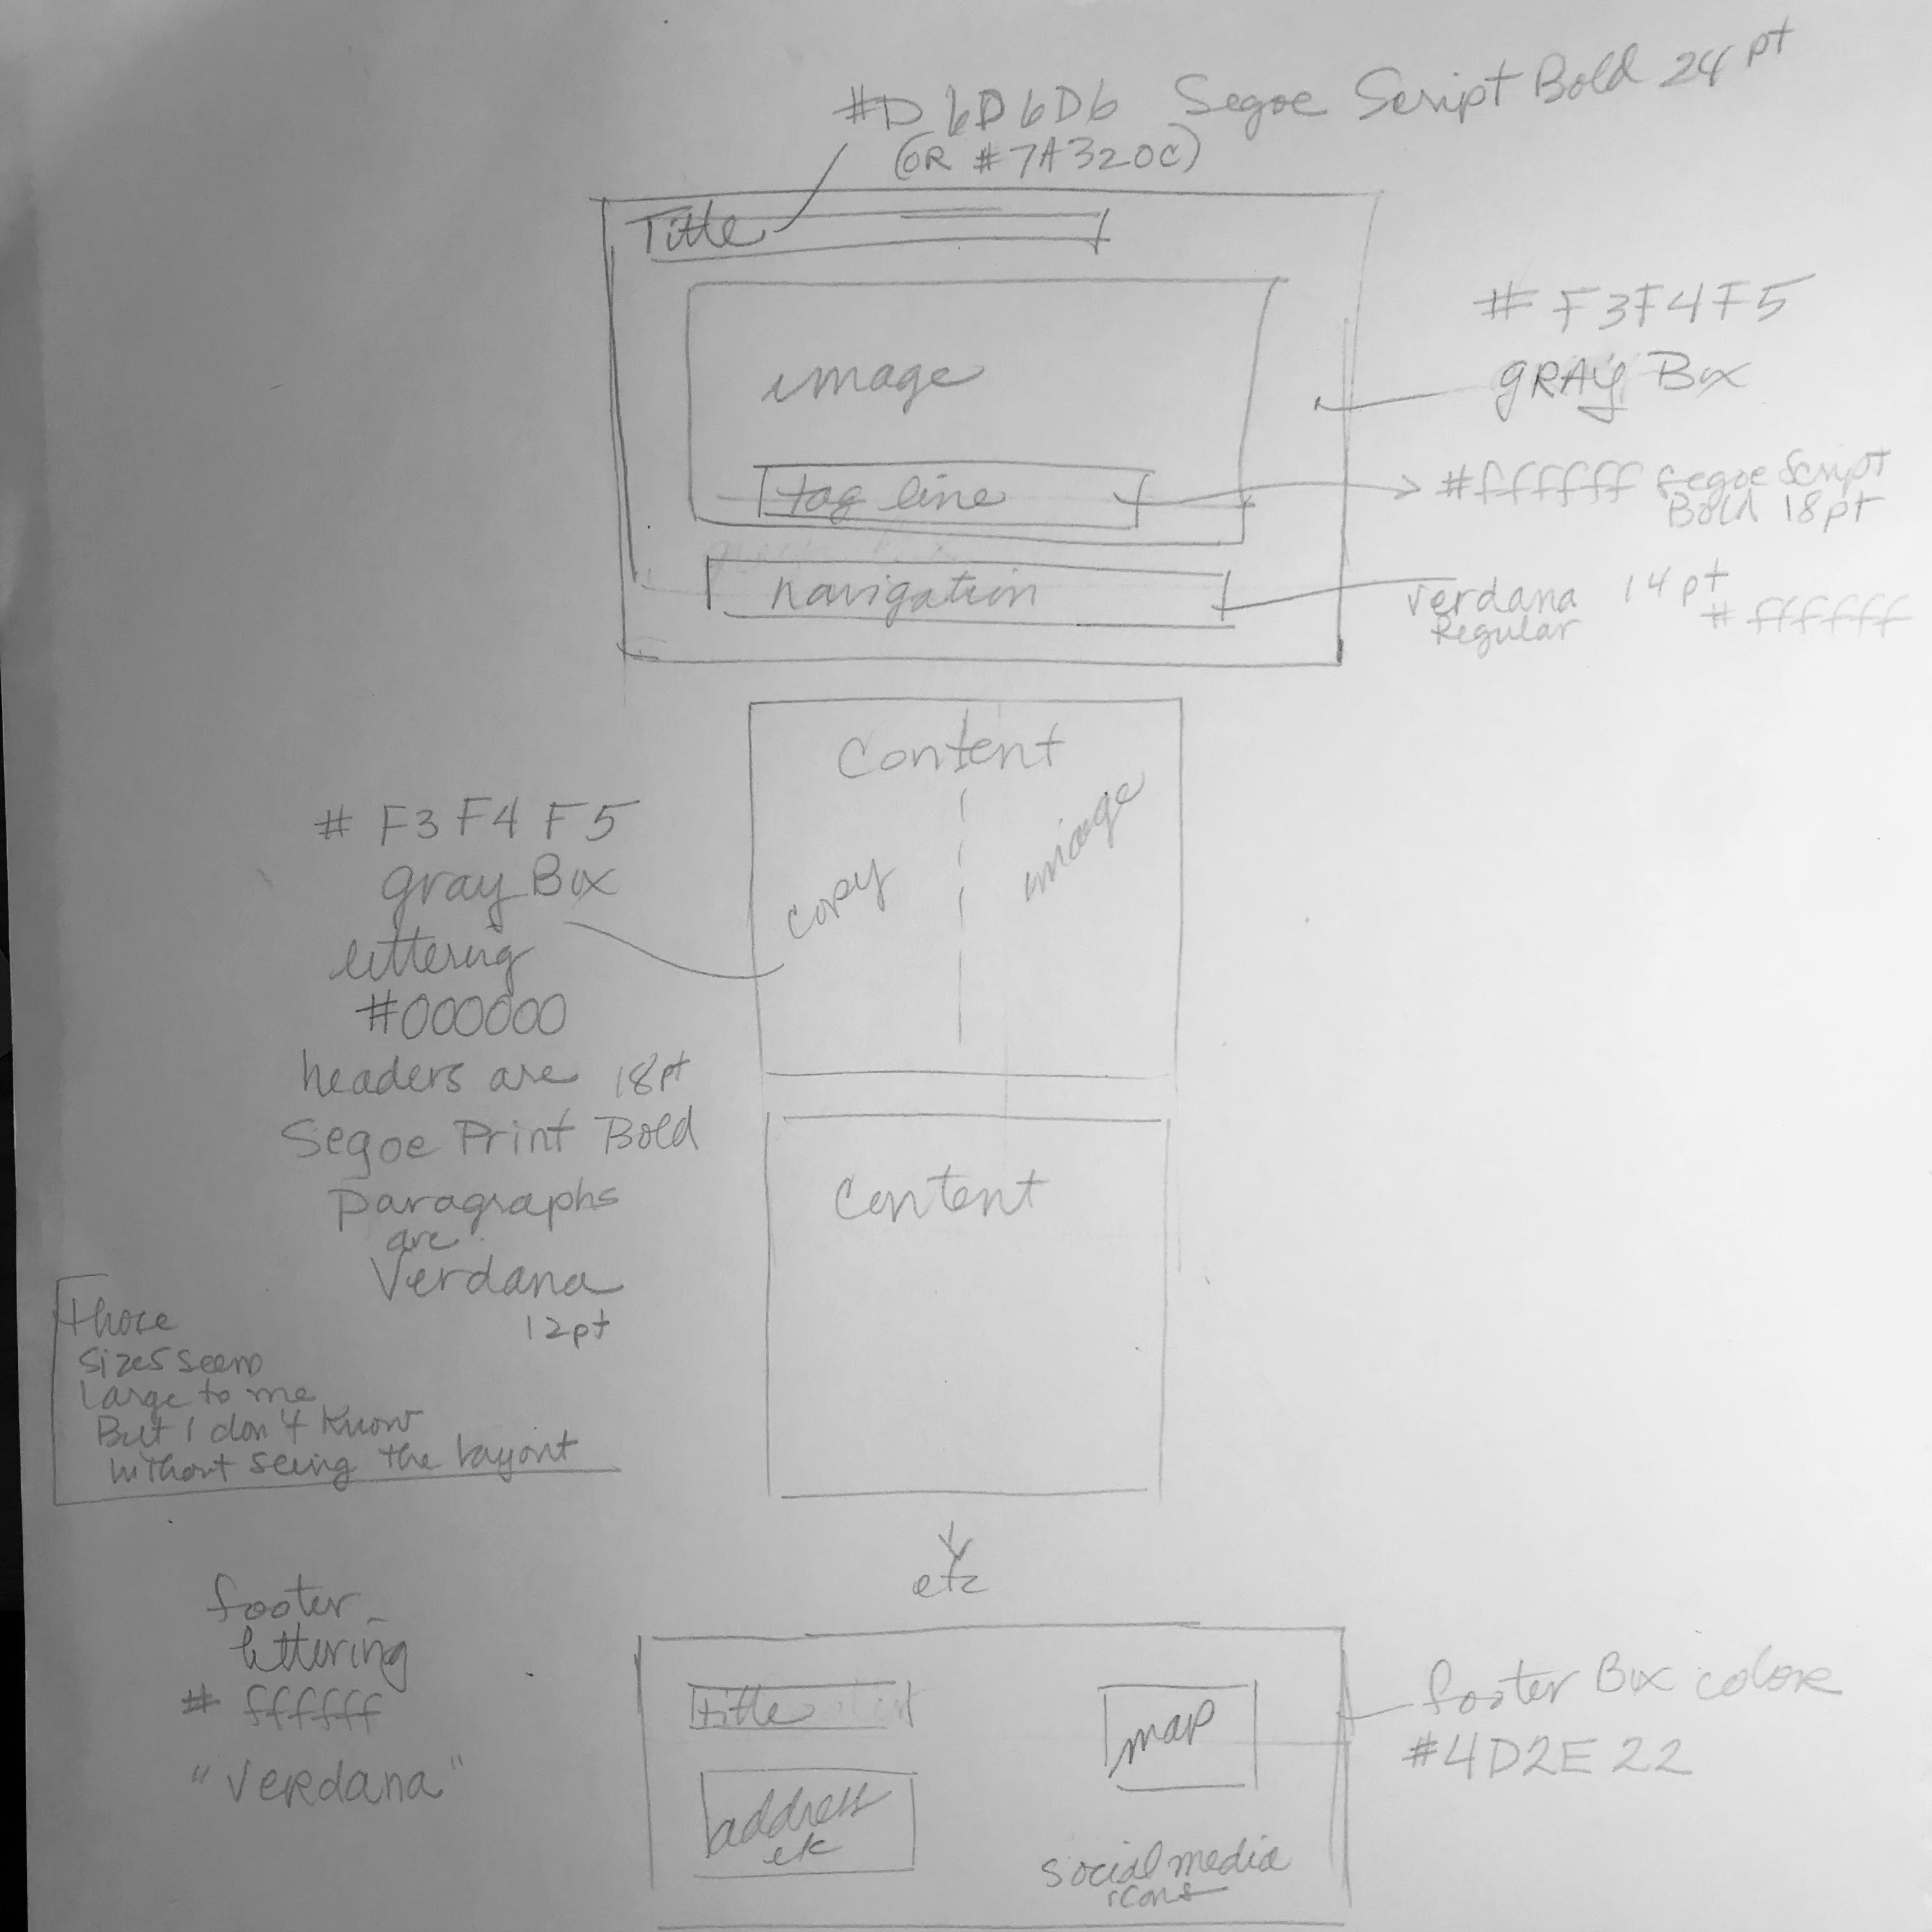 #D6D6D6 Segoe Script Bold 24pt
(OR #7A320C)
Title
image
# F3F4F5
GRAY Box
tag line
#ffffff Segoe Script
Bold 18pt
navigation
Verdana 14pt
Regular # ffffff
Content
copy
image
# F3F4F5
gray Box
lettering
#000000
headers are 18pt
Segoe Print Bold
Paragraphs
are
Verdana
12pt
Content
those
sizes seem
large to me
But I don't know
without seeing the layout
etc
footer
lettering
# ffffff
"Verdana"
title
map
address
etc
social media
icons
footer Box color
#4D2E22